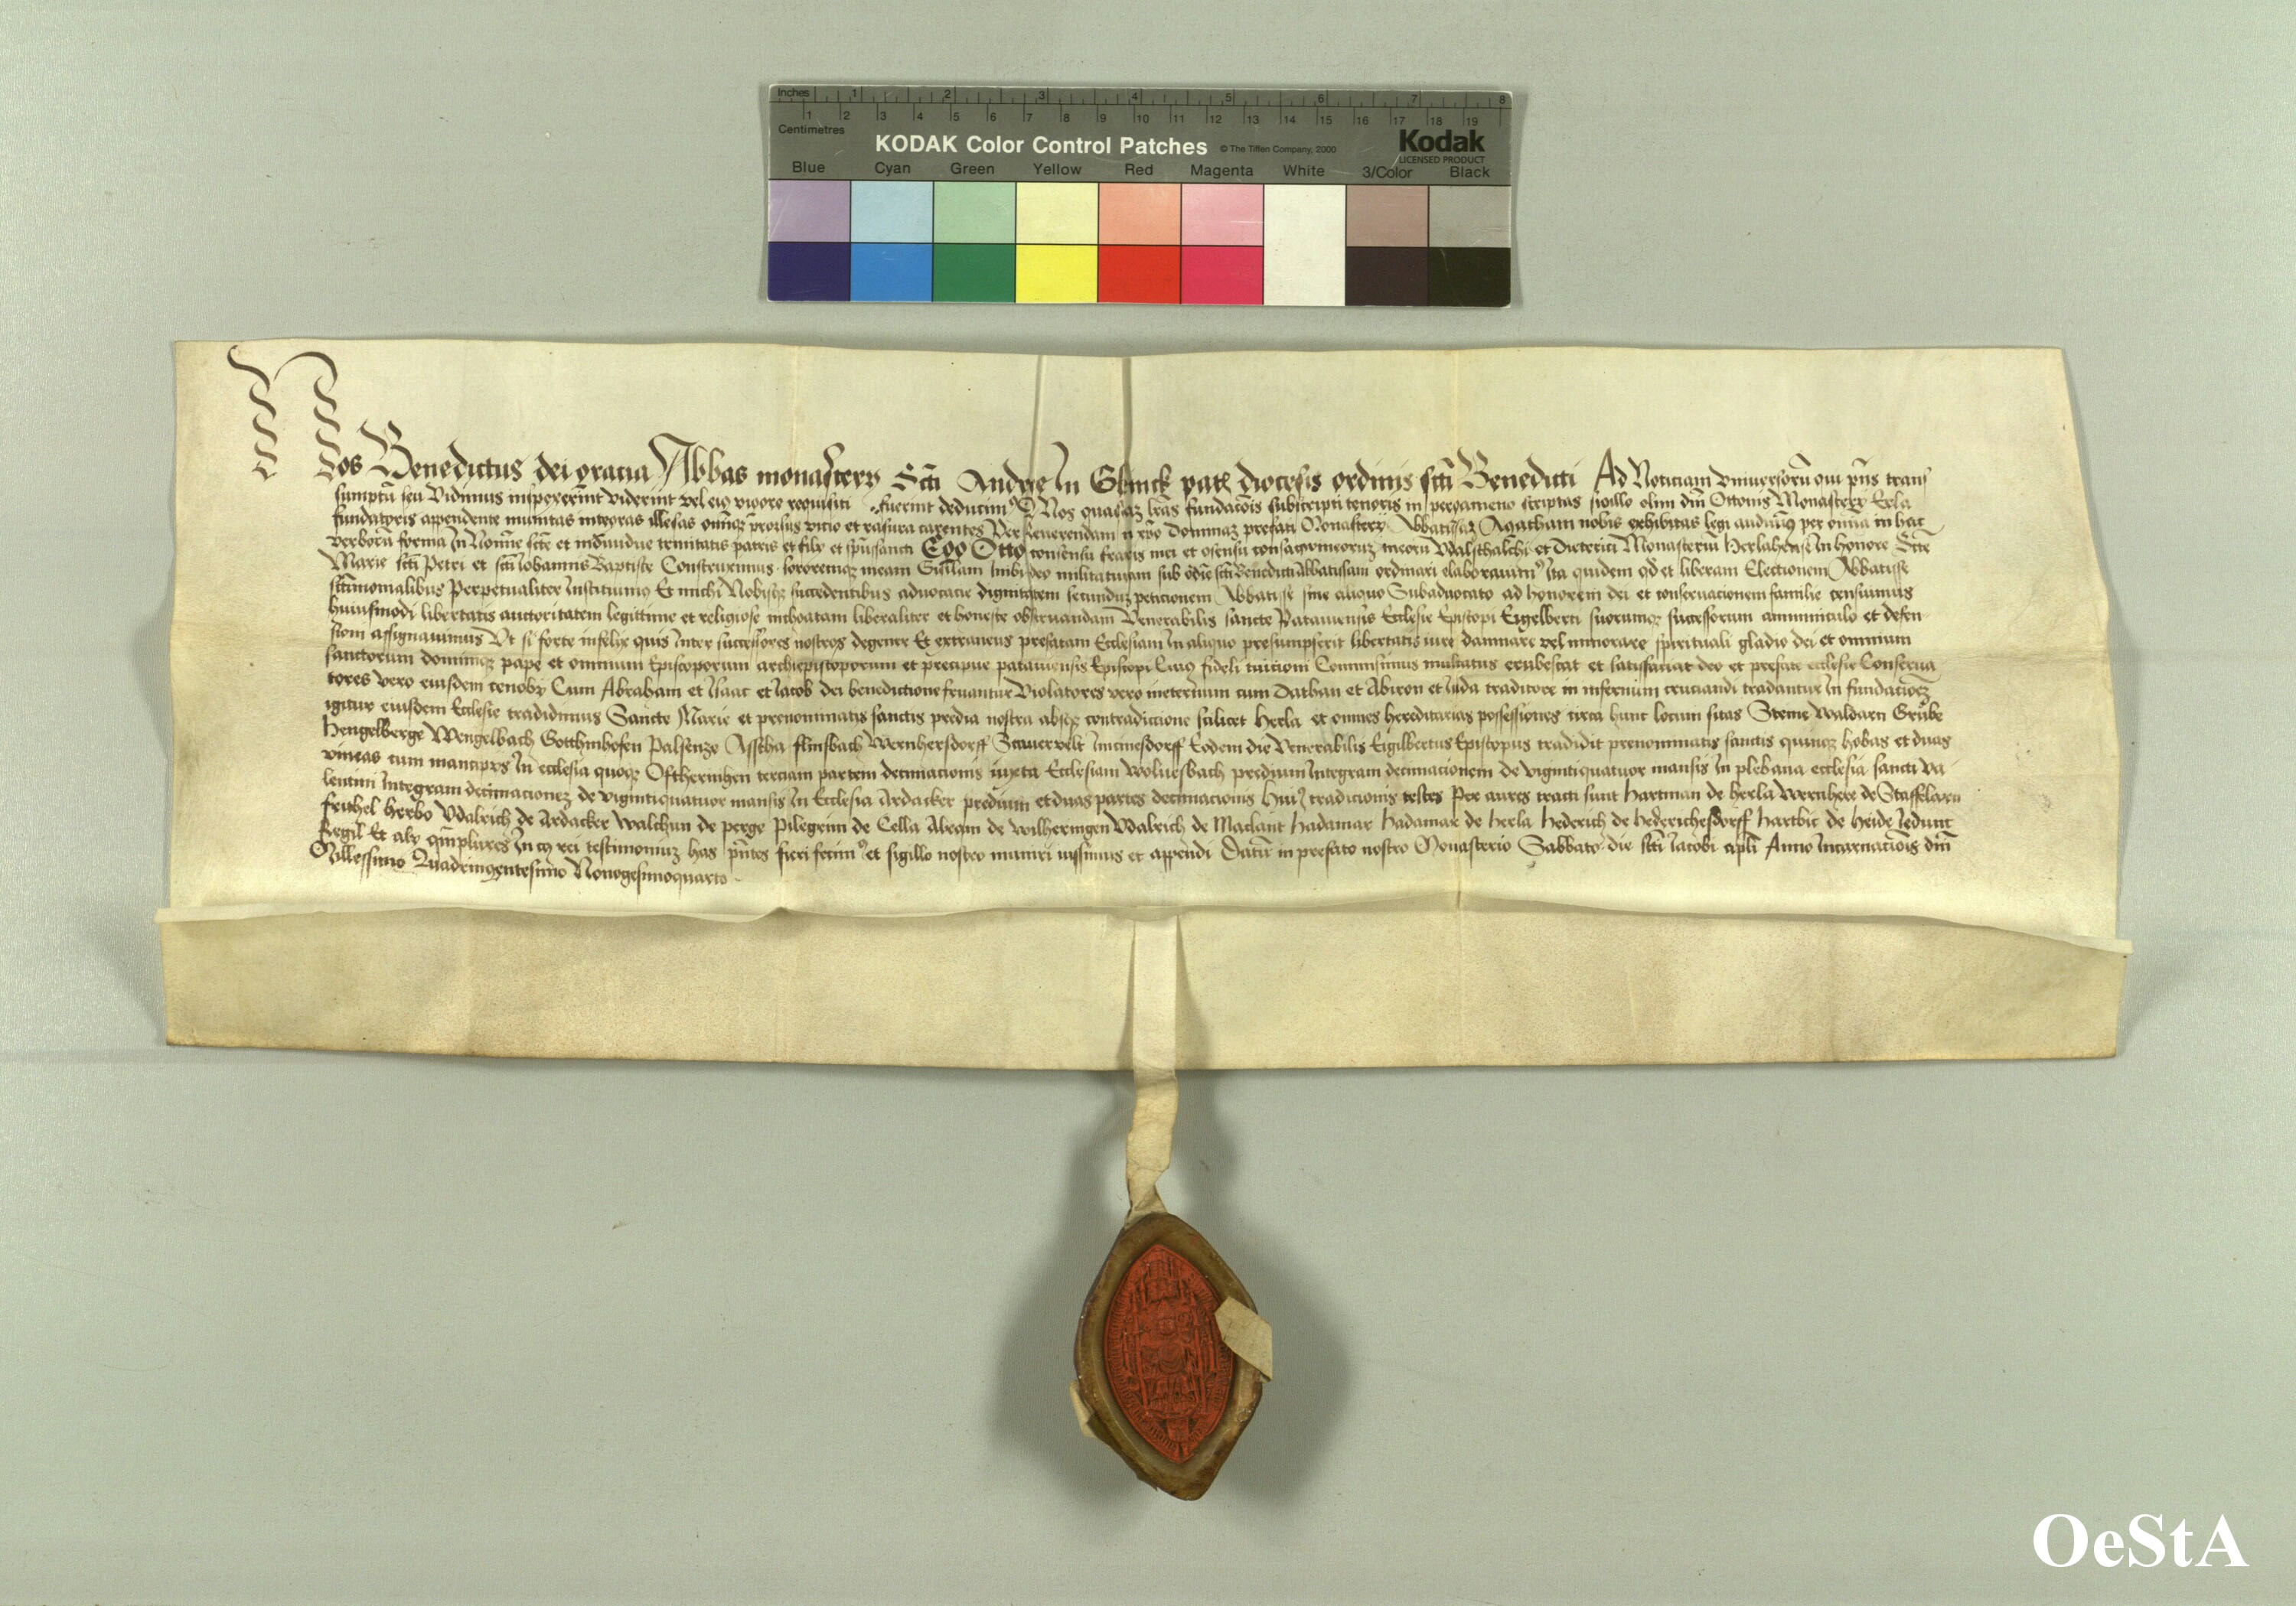 Inches 1 2 3 4 5 6 7 8
1 2 3 4 5 6 7 8 9 10 11 12 13 14 15 16 17 18 19
Centimetres
KODAK Color Control Patches © The Tiffen Company, 2000 Kodak
LICENSED PRODUCT
Blue Cyan Green Yellow Red Magenta White 3/Color Black
Nos Benedictus dei gracia Abbas monastery Scti Andree In Glinck pat diocesis ordinis scti Benedicti Ad Noticiam Universorū qui pn̄s trans
sumptū seu Vidimus inspexerint viderint vel eiꝰ vigore requisiti fuerint deducimꝰ Q Nos quasdaz lr̄as fundacōis subscripti tenoris in pergameno scriptas sigillo olim dn̄i Ottonis Monastery Erla
fundatoris appendente munitas integras illesas omīqꝫ prorsus vicio et rasura carentes Per Reverendam in xpō Dominaz prefati Monastery Abbatissaz Agatham nobis exhibitas legi audivimꝰ per omīa in hac
verborū forma In Nomīe scte et individue trinitatis patris et fily et spūssancti Ego Otto consensu fratris mei et consensu consagwineoruz meorū Walsthalchi et Dieterici Monasteriū Herlahense In honore Scte
Marie scti Petri et scti Iohannis Baptiste Construximus sororemqꝫ meam Gislam Inibi deo militaturam sub ordīe scti Benedicti Abbatissam ordinari elaboravimꝰ Ita quidem qd et liberam Electionem Abbatisse
sctimonialibus Perpetualiter Instituimꝰ Et michi Nobisqꝫ succedentibus advocacie dignitatem secunduz peticionem Abbatisse sine aliquo Subadvocato ad honorem dei et conservacionem familie censuimus
huiusmodi libertatis auctoritatem legittime et religiose inchoatam liberaliter et honeste observandam Venerabilis sancte Pataviensis Ecclesie Episcopi Eigelberti suorumqꝫ successorum amminiculo et defen
sioni assignavimus Ut si forte infelix quis Inter successores nostros degener Et extraneus prefatam Ecclesiam In aliquo presumpserit libertatis iure damnare vel minorare spirituali gladio dei et omnium
sanctorum dominiqꝫ pape et omnium Episcoporum archiepiscoporum et precipue pataviensis Episcopi Cuiꝰ fideli tuicioni Commisimus mulctatus erubescat et satisfaciat deo et prefate ecclesie Conserva
tores vero eiusdem cenoby Cum Abraham et Isaac et Iacob dei benedictione fruantur Violatores vero ineternum cum Dathan et Abiron et Iuda traditore in infernum cruciandi tradantur In fundacionē
igitur eiusdem Ecclesie tradidimus Sancte Marie et prenominatis sanctis predia nostra absqꝫ contradiccione scilicet Herla et omnes hereditarias possessiones circa hunc locum sitas Steine Waldarn Grube
Hengelberge Wengelbach Gotthinhofen Palsenze Asscha flinsbach Wernhersdorff Eodem die Venerabilis Eigilbertus Episcopus tradidit prenominatis sanctis quinqꝫ hobas et duas
vineas cum mancipys In ecclesia quoqꝫ Ofthernhen terciam partem decimacionis iuxta Ecclesiam Wolvesbach predium Integram decimacionem de vigintiquatuor mansis In plebana ecclesia sancti Va
lentini Integram decimacionez de vigintiquatuor mansis In Ecclesia Ardacker predium et duas partes decimacionis Huiꝰ tradicionis testes Per aures tracti sunt Hartman de herla Wernhere de Staffelarn
Herbo Udalrich de Ardacker Walchun de perge Pilegrim de Cella Abram de Wilheringen Udalrich de Maclant Hadamar Hadamar de herla Hederich de Hederichesdorff Hartwic de Heide
Regil Et aly qmplures In cuꝰ rei testimoniuz has pn̄tes fieri fecimꝰ et sigillo nostro muniri iussimus et appendi Datū in prefato nostro Monasterio Sabbato die scti Iacobi apli Anno Incarnaciōis dn̄i
Millessimo Quadringentesimo Nonogesimoquarto
OeStA